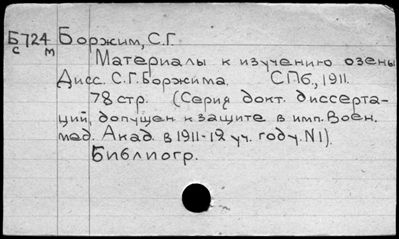 Б724 Боржим, С.Г.
с м
Материалы к изучению озены
Дисс. С.Г. Боржима. СПб., 1911.
78 стр. (Серия докт. диссерта-
ций, допущен. к защите в имп. Воен.
мед. Акад. в 1911-12 уч. году. N1).
Библиогр.